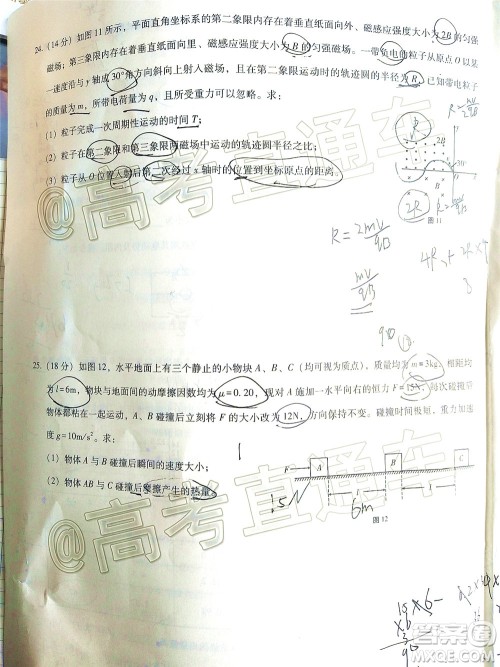 24. (14分) 如图11所示，平面直角坐标系的第二象限内存在着垂直纸面向外、磁感应强度大小为2B的匀强
磁场；第三象限内存在着垂直纸面向里、磁感应强度大小为B的匀强磁场。一带负电的粒子从原点O以某
一速度沿与y轴成30°角方向斜向上射入磁场，且在第二象限运动时的轨迹圆的半径为R，已知带电粒子
的质量为m，所带电荷量为q，且所受重力可以忽略。求：
(1) 粒子完成一次周期性运动的时间T；
(2) 粒子在第二象限和第三象限两磁场中运动的轨迹圆半径之比；
(3) 粒子从O位置入射后第二次经过x轴时的位置到坐标原点的距离。
R=mv/2qB
R
2B
30°
2R
B
图11
R=2mv/qB
mv/qB
25. (18分) 如图12，水平地面上有三个静止的小物块A、B、C（均可视为质点），质量均为m=3kg，相距均
为l=6m，物块与地面间的动摩擦因数均为μ=0.20，现对A施加一水平向右的恒力F=15N，每次碰撞后
物体都粘在一起运动，A、B碰撞后立刻将F的大小改为12N，方向保持不变。碰撞时间极短，重力加速
度g=10m/s²。求：
(1) 物体A与B碰撞后瞬间的速度大小；
(2) 物体AB与C碰撞后摩擦产生的热量。
F A B C
15N
l l
6m
图12
@高考直通车
@高考直通车
答案圈
MXQE.COM